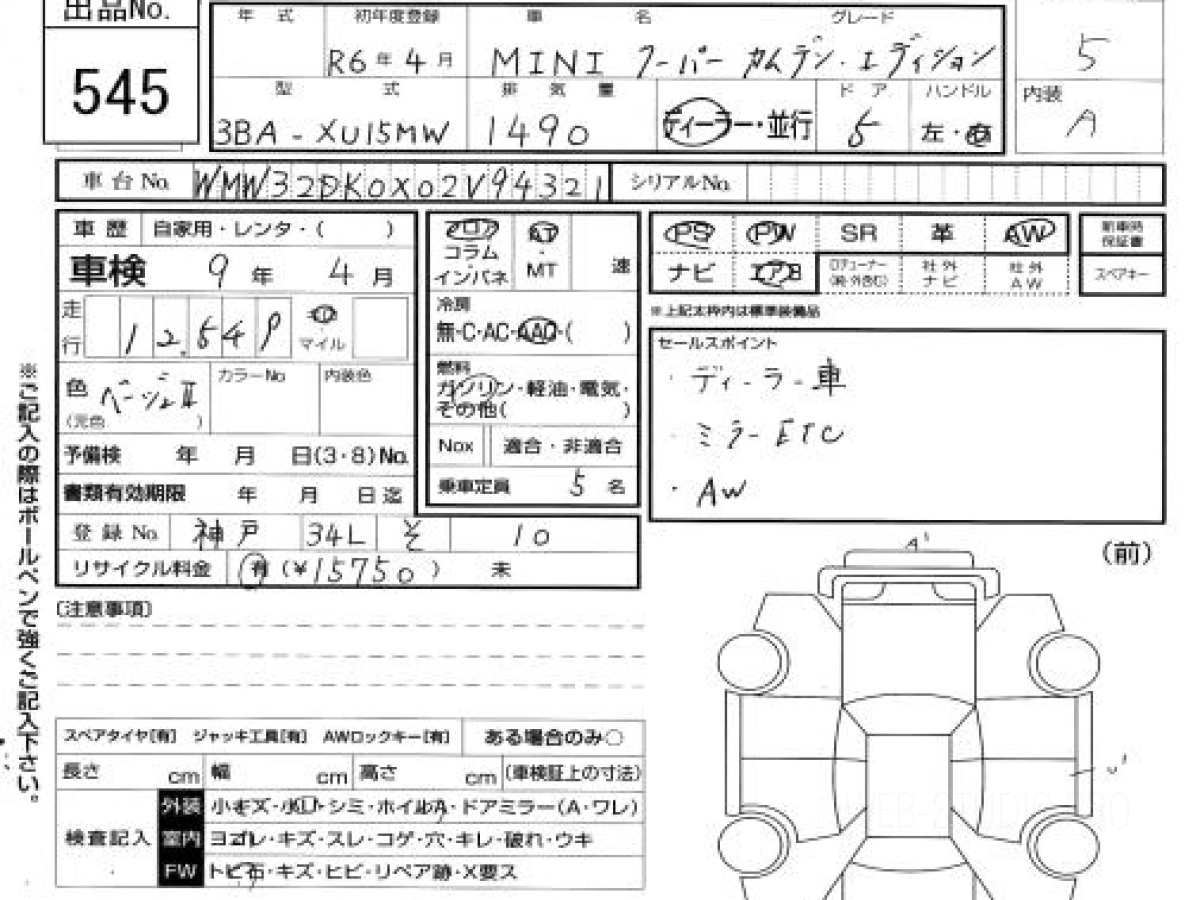 出品No.
545
年式 初年度登録 車名 グレード
R6年4月 MINI クーパー カムデン・エディション
型式 排気量 ドア ハンドル
3BA-XU15MW 1490 ディーラー・並行 5 左・右
5
内装
A
車台No. WMW32DK0X02V94321 シリアルNo.
車歴 自家用・レンタ・( )
車検 9年 4月
走行 12,549 マイル
色 ベージュⅡ カラーNo 内装色
(元色 )
予備検 年 月 日(3・8)No.
書類有効期限 年 月 日迄
登録No. 神戸 34L そ 10
リサイクル料金 有 (¥15750) 未
フロア
コラム
インパネ
AT
・
MT
速
冷房
無・C・AC・AAC・( )
燃料
ガソリン・軽油・電気・
その他( )
Nox 適合・非適合
乗車定員 5名
PS PW SR 革 AW 新車時保証書
ナビ エアB 社外ナビ 社外AW スペアキー
※上記太枠内は標準装備品
セールスポイント
・ディーラー車
・ミラーETC
・AW
(注意事項)
※ご記入の際はボールペンで強くご記入下さい。
スペアタイヤ[有] ジャッキ工具[有] AWロックキー[有] ある場合のみ○
長さ cm 幅 cm 高さ cm (車検証上の寸法)
検査記入
外装 小キズ・小凹・シミ・ホイルA・ドアミラー(A・ワレ)
室内 ヨゴレ・キズ・スレ・コゲ・穴・キレ・破れ・ウキ
FW トビ石・キズ・ヒビ・リペア跡・X要ス
(前)
A'
U'